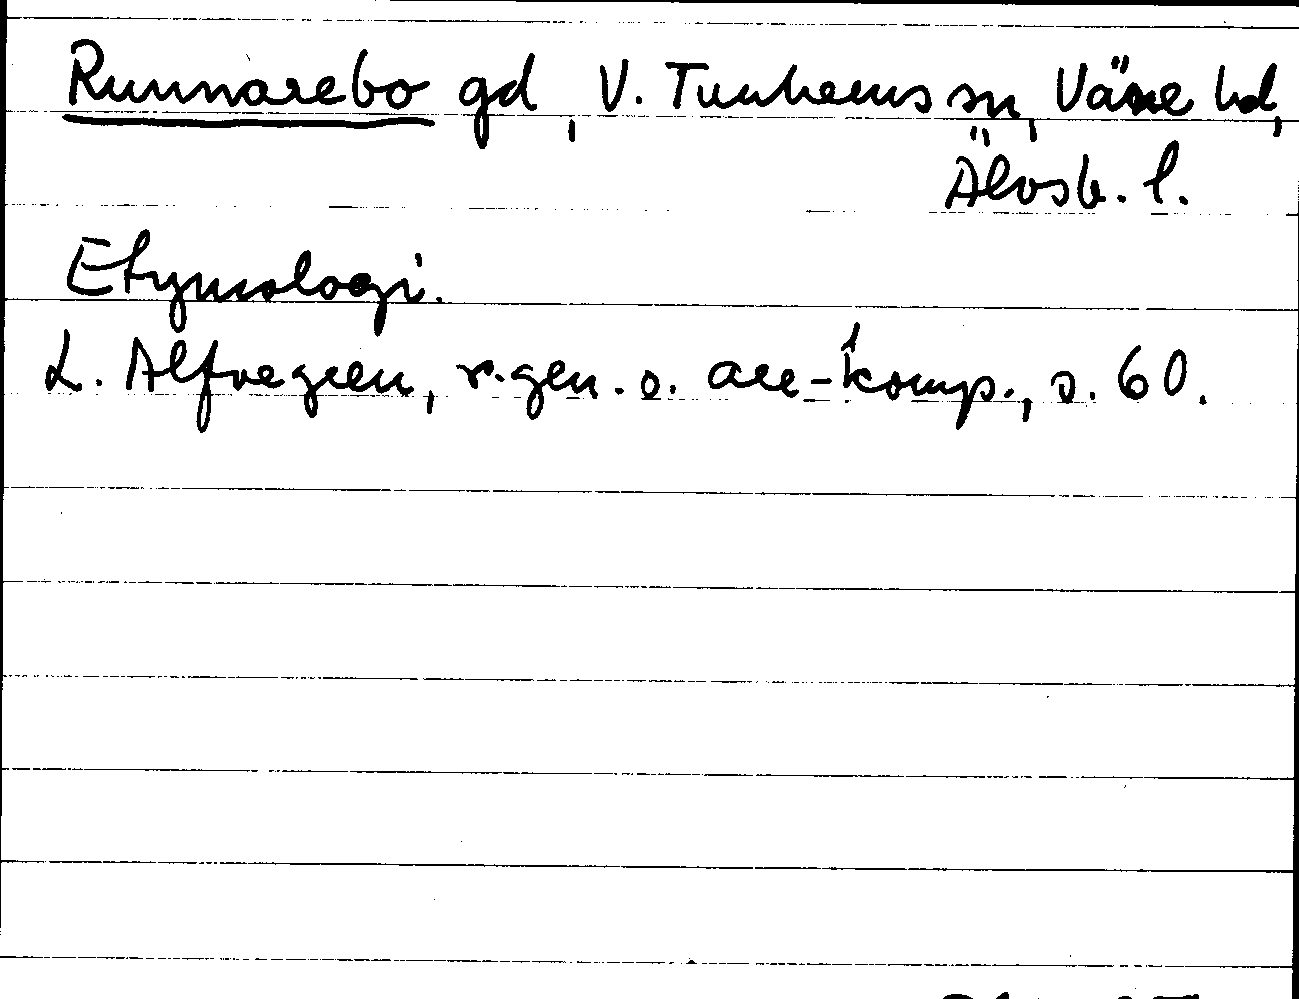 Runnarebo gd, V. Tunhems sn, Väne hd,
Älvsb. l.
Etymologi.
L. Alfvegren, r-gen. o. are-komp., s. 60.